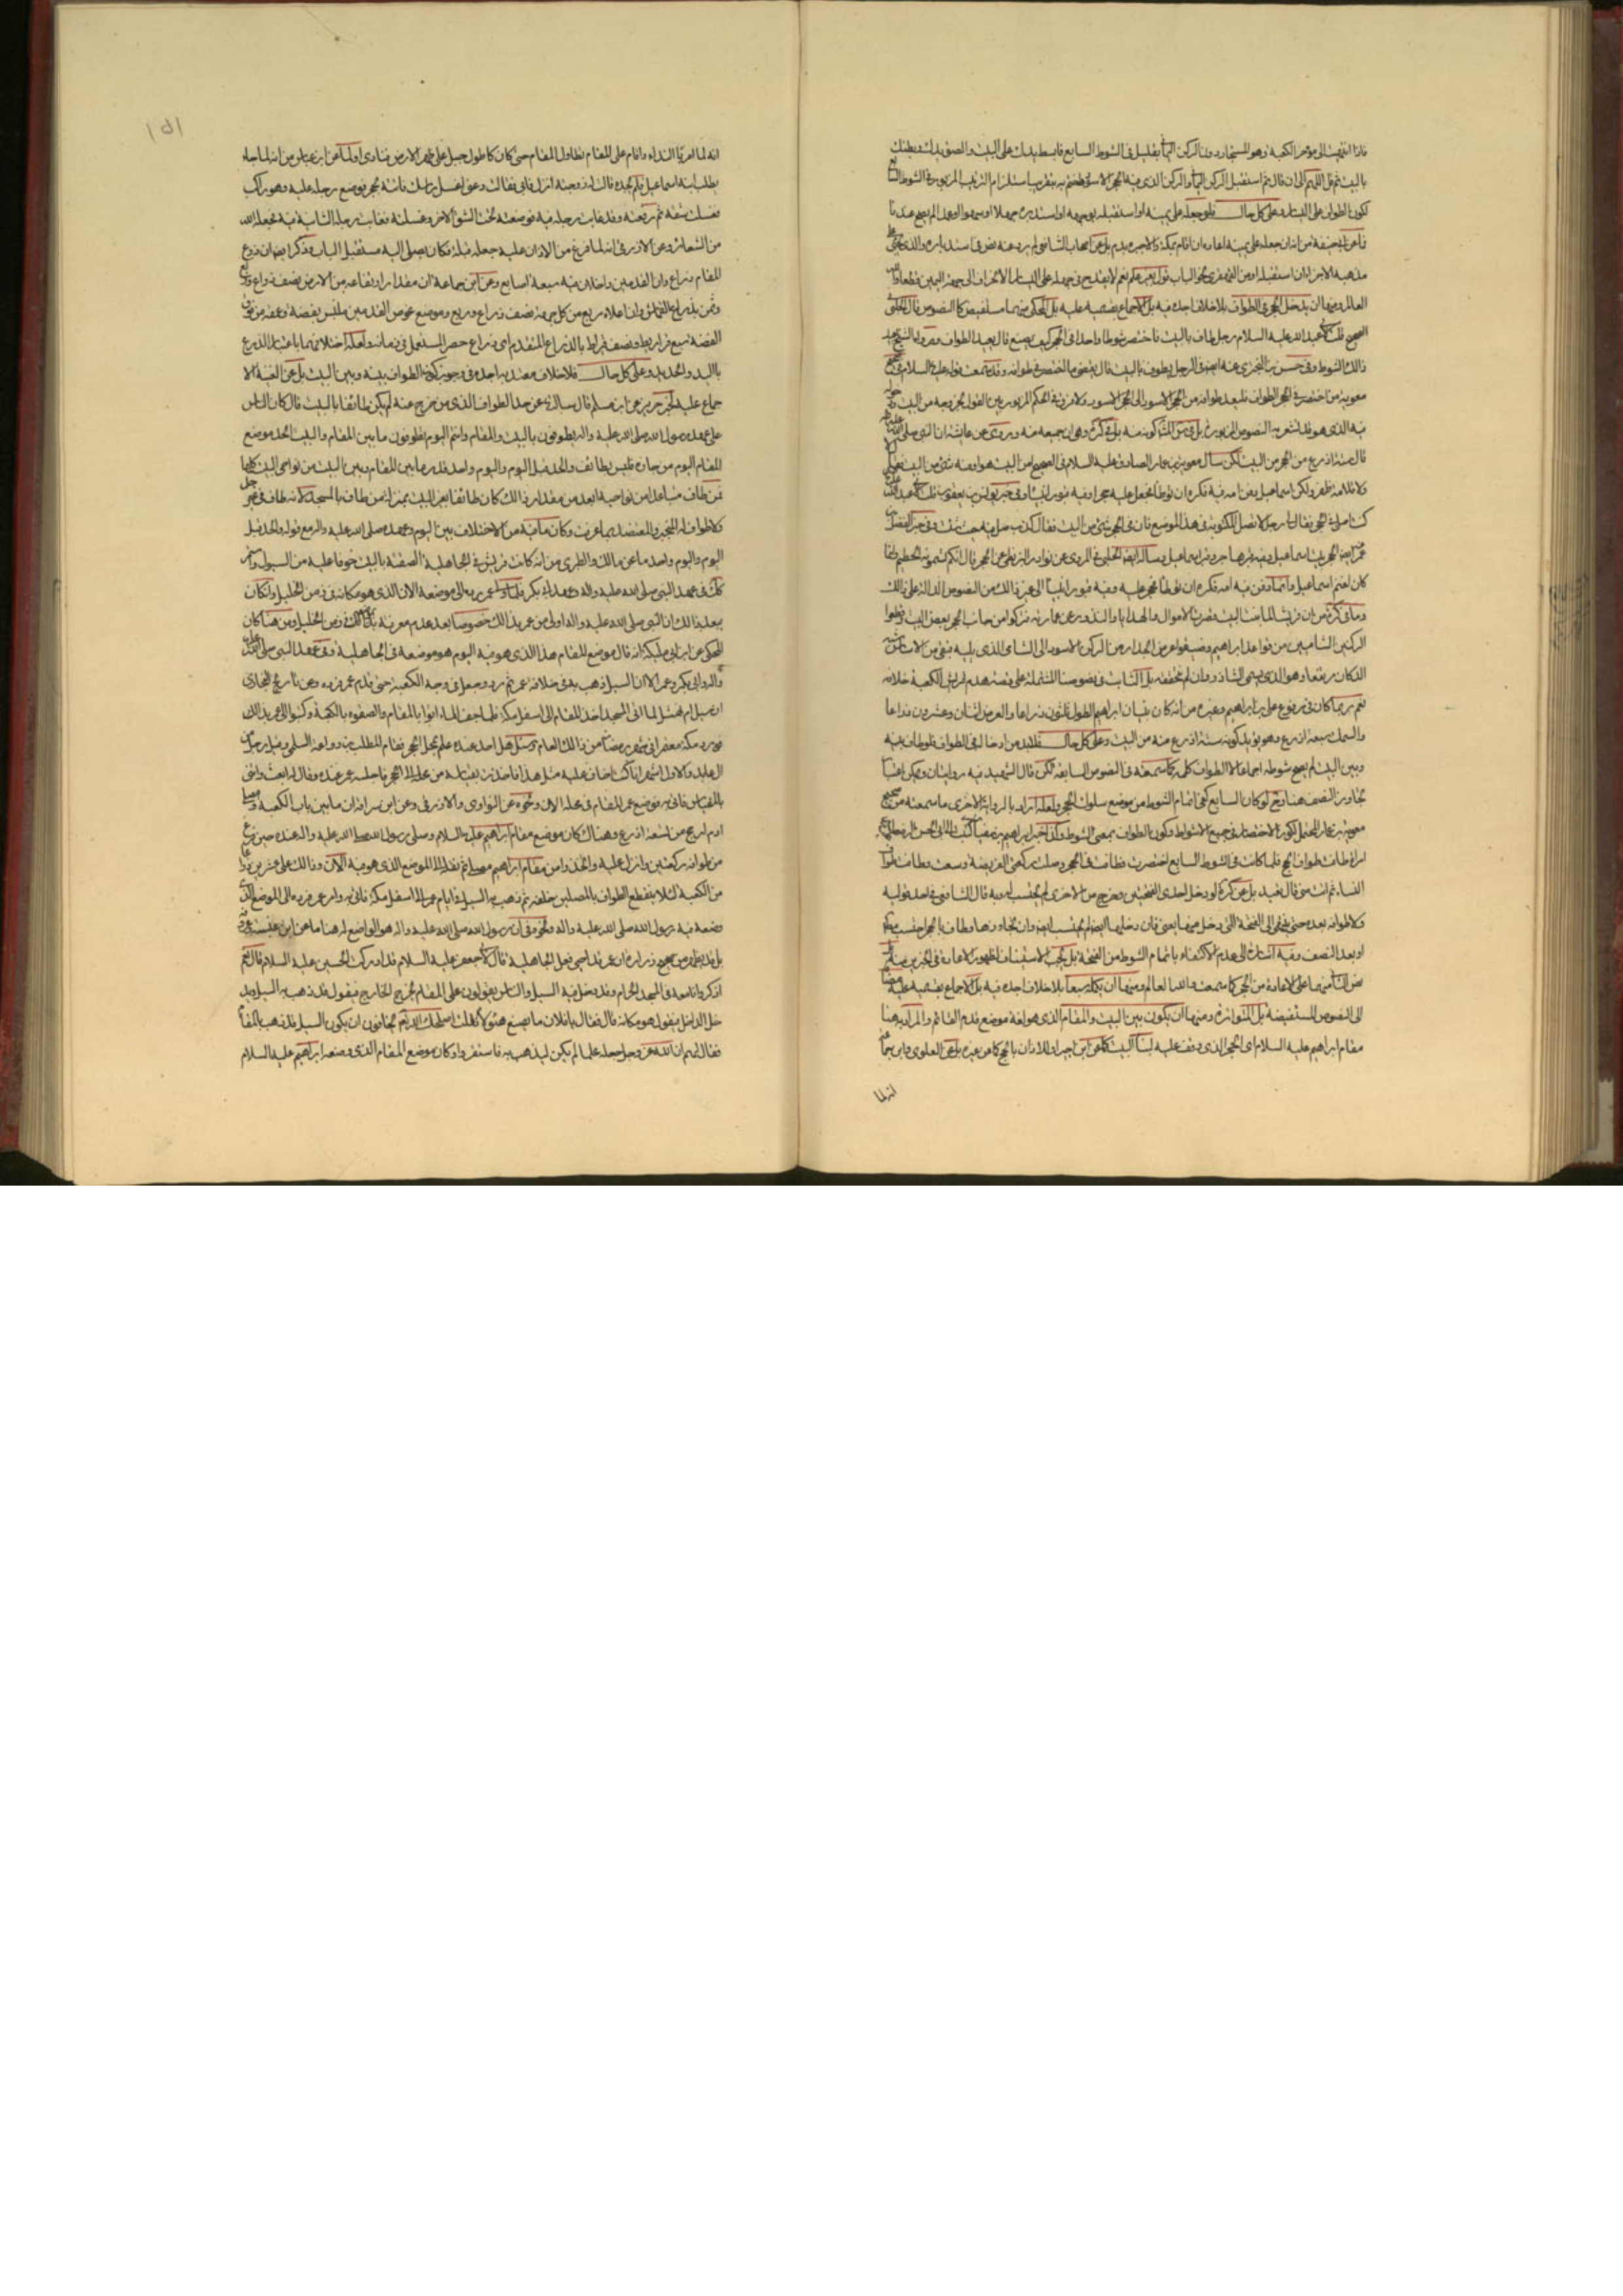 فاذا انتهيت الى مؤخر الكعبة وهو المستجار دون الركن اليماني بقليل في الشوط السابع فابسط يديك على البيت والصق بدنك وبطنك
بالبيت ثم قل اللهم الى ان قال ثم استقبل الركن اليماني والركن الذي فيه الحجر الاسود
كون الطواف على اليسار وعلى كل حال فلو جعله على يمينه او استقبله بوجهه او استدبره جهلا او سهوا او عمدا لم يصح عندنا
مذهبه الاجزاء ان استقبله او
العالم ومنها ان يدخل الحجر في الطواف بلا خلاف اجده فيه بل الاجماع بقسميه عليه بل المحكي منهما مستفيض كالنصوص قال الحلبي
الصحيح قلت لابي عبد الله عليه السلام رجل طاف بالبيت فاختصر شوطا واحدا في الحجر كيف يصنع قال يعيد الطواف
ذلك الشوط وفي حسن بن البختري عنه ايضا في الرجل يطوف بالبيت قال يقضي ما اختصر في طوافه وقد سمعت قوله عليه السلام في صحيح
معوية من اختصر في الحجر الطواف فليعد طوافه من الحجر الاسود الى الحجر الاسود
قال ستة اذرع من الحجر من البيت لكن سأل معوية بن عمار الصادق عليه السلام في الصحيح امن البيت هو او فيه شئ من البيت فقال
ولا قلامة ظفر ولكن اسماعيل دفن امه فيه فكره ان توطأ فجعل عليه حجرا وفيه قبور انبياء وفي خبر يونس بن يعقوب قلت لابي عبد الله
كنت اصلي في الحجر فقال لي رجل لا تصل المكتوبة في هذا الموضع فان في الحجر شئ من البيت فقال كذب صل فيه حيث شئت وفي خبر المفضل بن
عمر ايضا الحجر بيت اسماعيل وفيه قبر هاجر وقبر اسماعيل وسأله ايضا الحلبي في المروي عن نوادر البزنطي عن الحجر قال انكم تسمونه الحطيم وانما
كان لغنم اسماعيل وانما دفن فيه امه فكره ان توطأ فحجر عليه وفيه قبور انبياء الى غير ذلك من النصوص الدالة على ذلك
وما في كره من ان قريشا لما بنت البيت قصرت الاموال والهدايا والنذور عن عمارته فتركوا من جانب الحجر بعض البيت وقطعوا
الركنين الشاميين من قواعد ابراهيم وضيقوا عرض الجدار من الركن الاسود الى الشامي الذي يليه فبقي من الاساس شبه
الدكان مرتفعا وهو الذي يسمى الشاذروان لم نتحققه بل الثابت في نصوصنا المشتملة على قصة هدم قريش الكعبة خلافه
نعم ربما كان في مرفوع علي بن ابراهيم وغيره من انه كان بنيان ابراهيم الطول ثلثون ذراعا والعرض اثنان وعشرون ذراعا
والسمك تسعة اذرع وهو يؤيد كونه ستة اذرع منه من البيت وعلى كل حال فلابد من ادخاله في الطواف فلو طاف بينه
وبين البيت لم يصح شوطه اجماعا لا الطواف كله كما سمعته في النصوص السابقة لكن قال الشهيد فيه روايتان ويمكن اعتبار
تجاوز النصف هنا وح لو كان السابع كفى اتمام الشوط من موضع سلوك الحجر ولعله اراد بالرواية الاخرى ما سمعته من صحيح
معوية بن عمار المحتمل لكون الاختصار في جميع الاشواط وكون الطواف بمعنى الشوط وكذا خبر ابراهيم بن سفيان كتبت الى ابي الحسن الرضا
امرأة طافت طواف الحج فلما كانت في الشوط السابع اختصرت فطافت في الحجر وصلت ركعتي الفريضة وسعت وطافت طواف
النساء ثم اتت منى قال تعيد بل عن كره لو دخل احدى الفتحتين وخرج من الاخرى لم يحتسب له وبه قال الشافعي في احد قوليه
ولا طوافه بعده حتى ينتهي الى الفتحة التي دخل منها
او بعد النصف وفيه اشارة الى عدم الاكتفاء باتمام الشوط من الفتحة بل يجب الاستيناف لظهور الاعادة في الخبرين
نص الثاني منهما على الاعادة من الحجر كما سمعت والله العالم ومنها ان يكمله سبعا بلا خلاف اجده فيه بل الاجماع بقسميه عليه
الى النصوص المستفيضة بل المتواترة ومنها ان يكون بين البيت والمقام الذي هو لغة موضع قدم القائم والمراد به هنا
مقام ابراهيم عليه السلام اي الحجر الذي وقف عليه لبناء البيت كما عن ابن جبير او للاذان بالحج كما عن غيره بل عن العلوي وابن جماعة
انه لما
١٥١
انه لما امر بالنداء وقام على المقام تطاول المقام حتى كان كاطول جبل على ظهر الارض فنادى او لما عن ابن عباس من انه لما جاء
يطلب ابنه اسماعيل فلم يجده قالت له زوجته انزل فابى فقالت دعني اغسل رأسك فاتته بحجر فوضع رجله عليه وهو راكب
فغسلت شقه ثم رفعته وقد غابت رجله فيه فوضعته تحت الشق الاخر وغسلته فغابت رجله الثانية فيه فجعله الله
من الشعائر وعن الازرقي انه لما فرغ من الاذان عليه جعله قبلة فكان يصلي اليه مستقبل الباب وذكر ايضا ان ذرع
المقام ذراع وان القدمين داخلان فيه سبعة اصابع وعن ابن جماعة ان مقدار ارتفاعه من الارض نصف ذراع وربع
وثمن بذراع القماش وان اعلاه مربع من كل جهة نصف ذراع وربع وموضع غوص القدمين ملبس بفضة وعمقه من فوق
الفضة سبع قراريط ونصف قيراط بالذراع المتقدم اي ذراع مصر المستعمل في زمانه ولعله اختلافهما باعتبار الذرع
باليد والحديد وعلى كل حال فلا خلاف معتد به اجده في وجوب كون الطواف بينه وبين البيت بل عن الغنية الا
جماع عليه لخبر حريز عن ابن مسلم قال سألته عن حد الطواف الذي من خرج عنه لم يكن طائفا بالبيت قال كان الناس
على عهد رسول الله صلى الله عليه واله يطوفون بالبيت والمقام وانتم اليوم تطوفون ما بين المقام والبيت فكان الحد موضع
المقام اليوم من جازه فليس بطائف والحد قبل اليوم واليوم واحد قدر ما بين المقام وبين البيت من نواحي البيت كلها
فمن طاف فتباعد من نواحيه ابعد من مقدار ذلك كان طائفا بغير البيت بمنزلة من طاف بالمسجد لانه طاف في غير حد
ولا طواف له المنجبر والمعتضد بما عرفت وكان ما فيه من الاختلاف بين اليوم وعهده صلى الله عليه واله مع قوله والحد قبل
اليوم واليوم واحد ما عن مالك والطبري من انه كانت قريش في الجاهلية الصقته بالبيت خوفا عليه من السيول واستمر
كك في عهد النبي صلى الله عليه واله وعهد ابي بكر فلما ولي عمر رده الى موضعه الان الذي هو مكانه في زمن الخليل وان كان
يبعد ذلك ان النبي صلى الله عليه واله اولى من عمر بذلك خصوصا بعد عدم معرفته بانه كك في زمن الخليل ومن هنا كان
المحكي عن ابن ابي مليكة انه قال موضع المقام هذا الذي هو فيه اليوم هو موضعه في الجاهلية وفي عهد النبي صلى الله عليه
واله وابي بكر وعمر الا ان السيل ذهب به في خلافة عمر ثم رد وجعل في وجه الكعبة حتى قدم عمر فرده وعن تاريخ البخاري
ان سيل ام نهشل لما اتى المسجد اخذ المقام الى اسفل مكة فلما جف الماء اتوا بالمقام والصقوه بالكعبة وكتبوا الى عمر بذلك
فورد مكة معتمرا في شهر رمضان من ذلك العام وسئل هل احد عنده علم بمحل الحجر فقام المطلب بن وداعة السلمي وقيل رجل من
بالمقياس فاتى به فوضع عمر المقام في محله الان ونحوه عن النواوي والازرقي وعن ابن سراقة ان ما بين باب الكعبة ومصلى
ادم ارجح من تسعة اذرع وهناك كان موضع مقام ابراهيم عليه السلام وصلى رسول الله صلى الله عليه واله عنده حين فرغ
من طوافه ركعتين وانزل عليه واتخذوا من مقام ابراهيم مصلى ثم نقله الى الموضع الذي هو فيه الان وذلك على عشرين ذراعا
من الكعبة لئلا ينقطع الطواف بالمصلين خلفه ثم ذهب به السيل في ايام عمر الى اسفل مكة فاتي به وامر عمر فرده الى الموضع الذي
وضعه فيه رسول الله صلى الله عليه واله ونحوه في ان رسول الله صلى الله عليه واله هو الواضع له هنا ما عن ابن
بل قد يظهر من صحيح زرارة ان عمر قد احيى فعل الجاهلية قال لابي جعفر عليه السلام قد ادركت الحسين عليه السلام قال نعم
اذكر وانا معه في المسجد الحرام وقد دخل فيه السيل والناس يقولون على المقام يخرج الخارج فيقول قد ذهب به السيل ويد
خل الداخل فيقول هو مكانه قال فقال يا فلان ما يصنع هؤلاء فقلت اصلحك الله انهم يخافون ان يكون السيل قد ذهب بالمقام
فقال لهم ان الله عز وجل جعله علما لم يكن ليذهب به فاستقروا وكان موضع المقام الذي وضعه ابراهيم عليه السلام